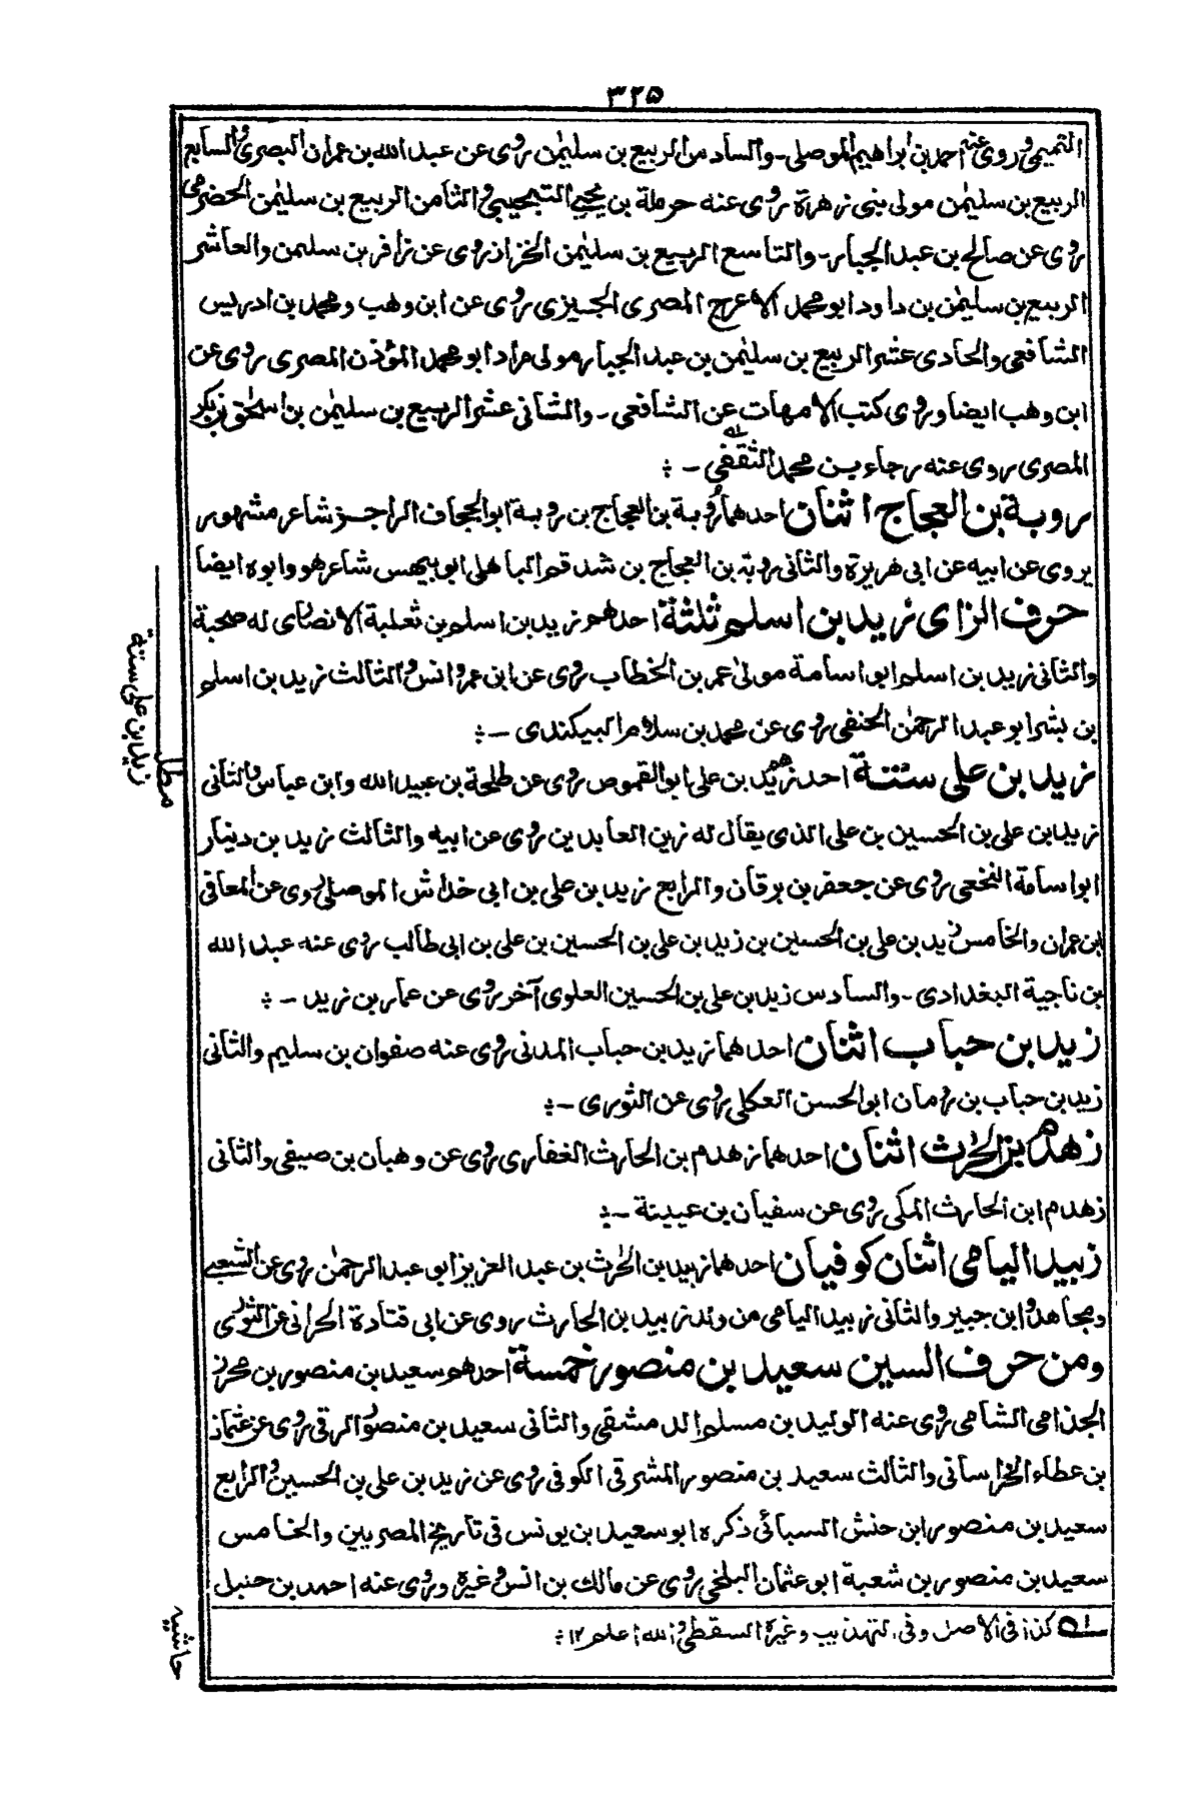 ٣٢٥
التميمي وروى عنه احمد بن ابراهيم الموصلي - والسادس الربيع بن سليمٰن روى عن عبد الله بن عمران البصري والسابع
الربيع بن سليمٰن مولى بني زهرة روى عنه حرملة بن يحيى التجيبي والثامن الربيع بن سليمٰن الحضرمي
روى عن صالح بن عبد الجبار - والتاسع الربيع بن سليمٰن الخزاز روى عن زافر بن سليمن والعاشر
الربيع بن سليمٰن بن داود ابو محمد الاعرج المصرى الجيزى روى عن ابن وهب ومحمد بن ادريس
الشافعي والحادى عشر الربيع بن سليمٰن بن عبد الجبار مولى مراد ابو محمد المؤذن المصرى روى عن
ابن وهب ايضا وروى كتب الامهات عن الشافعي - والثاني عشر الربيع بن سليمٰن بن اسحٰق بن بكر
المصرى روى عنه رجاء بن محمد الثقفي له - ؞
روبة بن العجاج اثنان احدهما رُوبة بن العجاج بن روبة ابو الجحاف الراجز شاعر مشهور
يروى عن ابيه عن ابى هريرة والثاني روبة بن العجاج بن شدقم الباهلى ابو بيهس شاعر هو وابوه ايضا
حرف الزاى زيد بن اسلم ثلثة احدهم زيد بن اسلم بن ثعلبة الانصارى له صحبة
والثاني زيد بن اسلم ابو اسامة مولى عمر بن الخطاب روى عن ابن عمر وانس والثالث زيد بن اسلم
بن بشر ابو عبد الرحمٰن الحنفى روى عن محمد بن سلام البيكندى - ؞
زيد بن على ستة احدهم زيد بن على ابو القموص روى عن طلحة بن عبيد الله وابن عباس والثانى
زيد بن على بن الحسين بن على الذى يقال له زين العابدين روى عن ابيه والثالث زيد بن دينار
ابو اسامة النخعى روى عن جعفر بن برقان والرابع زيد بن على بن ابى خداش الموصلى روى عن المعافى
بن عمران والخامس زيد بن على بن الحسين بن زيد بن على بن الحسين بن على بن ابى طالب روى عنه عبد الله
بن ناجية البغدادى - والسادس زيد بن على بن الحسين العلوى آخر روى عن عمار بن زيد - ؞
زيد بن حباب اثنان احدهما زيد بن حباب المدنى روى عنه صفوان بن سليم والثانى
زيد بن حباب بن رومان ابو الحسن العكلى روى عن الثورى - ؞
زهدم بن الحٰرث اثنان احدهما زهدم بن الحارث الغفارى روى عن وهبان بن صيفى والثانى
زهدم ابن الحارث المكى روى عن سفيان بن عيينة - ؞
زبيد اليامى اثنان كوفيان احدهما زبيد بن الحٰرث بن عبد العزيز ابو عبد الرحمٰن روى عن الشعبى
ومجاهد وابن جبير والثانى زبيد اليامى من ولد زبيد بن الحارث روى عن ابى قتادة الحرانى عن الثورى
ومن حرف السين سعيد بن منصور خمسة احدهم سعيد بن منصور بن محرز
الجذامى الشامى روى عنه الوليد بن مسلم الدمشقى والثانى سعيد بن منصور الرقى روى عن عثمان
بن عطاء الخراسانى والثالث سعيد بن منصور المشرقى الكوفى روى عن زيد بن على بن الحسين والرابع
سعيد بن منصور ابن حنش السبائى ذكره ابو سعيد بن يونس فى تاريخ المصريين والخامس
سعيد بن منصور بن شعبة ابو عثمان البلخى روى عن مالك بن انس وغيره وروى عنه احمد بن حنبل
له كذا فى الاصل وفى التهذيب وغيره السقطى والله اعلم ١٢ ؞
مطلب
زيد بن على ستة
حاشيه